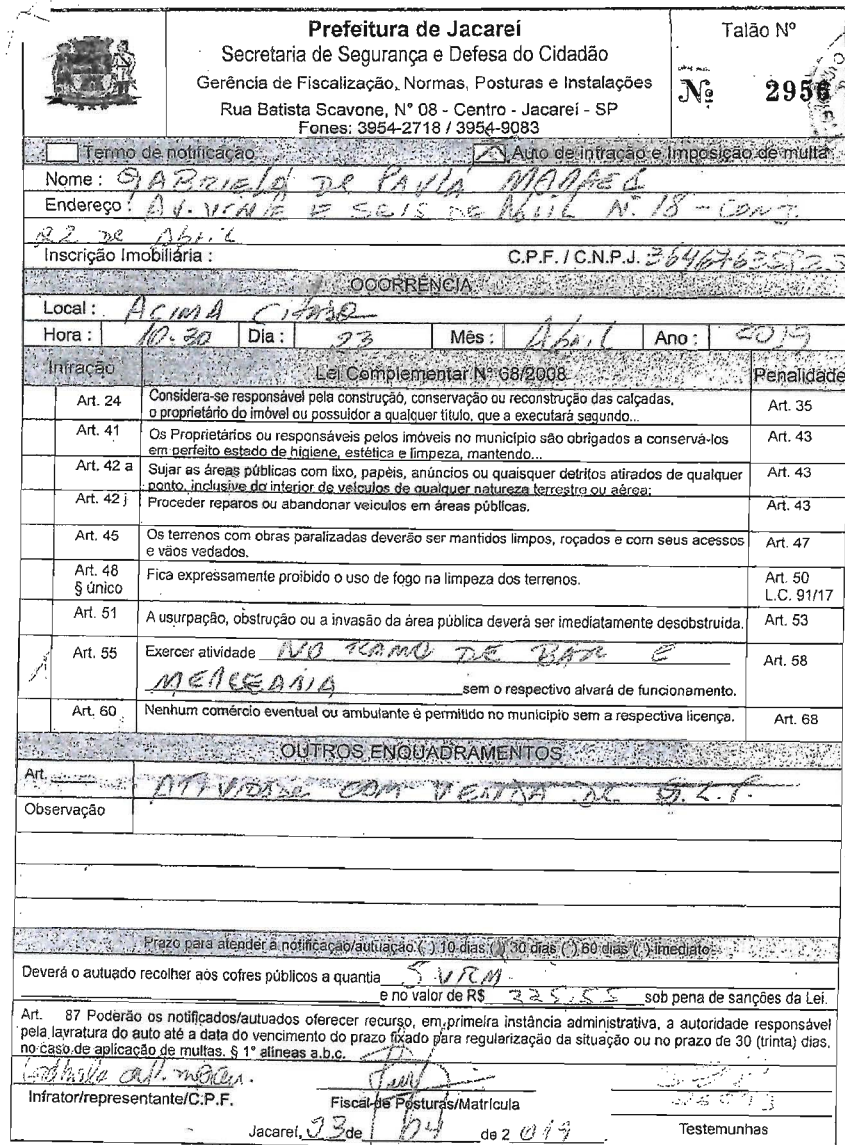 Prefeitura de Jacareí
Secretaria de Segurança e Defesa do Cidadão
Gerência de Fiscalização, Normas, Posturas e Instalações
Rua Batista Scavone, N° 08 - Centro - Jacareí - SP
Fones: 3954-2718 / 3954-9083
Talão Nº
Nº 2956
Termo de notificação Auto de infração e Imposição de multa
Nome : GABRIELA DE PAULA
Endereço : AV. VINTE E SEIS DE Abril N. 18 - CONJ.
22 DE Abril
Inscrição Imobiliária : C.P.F. / C.N.P.J.
OCORRÊNCIA
Local : ACIMA Citado
Hora : 10:30 Dia : 23 Mês : Abril Ano : 2019
Infração Lei Complementar N° 68/2008 Penalidade
Art. 24 Considera-se responsável pela construção, conservação ou reconstrução das calçadas, Art. 35
o proprietário do imóvel ou possuidor a qualquer titulo, que a executará segundo...
Art. 41 Os Proprietários ou responsáveis pelos imóveis no município são obrigados a conservá-los Art. 43
em perfeito estado de higiene, estética e limpeza, mantendo...
Art. 42 a Sujar as áreas públicas com lixo, papéis, anúncios ou quaisquer detritos atirados de qualquer Art. 43
ponto, inclusive do interior de veículos de qualquer natureza terrestre ou aérea;
Art. 42 j Proceder reparos ou abandonar veiculos em áreas públicas. Art. 43
Art. 45 Os terrenos com obras paralizadas deverão ser mantidos limpos, roçados e com seus acessos Art. 47
e vãos vedados.
Art. 48 Fica expressamente proibido o uso de fogo na limpeza dos terrenos. Art. 50
§ único L.C. 91/17
Art. 51 A usurpação, obstrução ou a invasão da área pública deverá ser imediatamente desobstruída. Art. 53
Art. 55 Exercer atividade NO RAMO DE BAR E Art. 58
MERCEARIA sem o respectivo alvará de funcionamento.
Art. 60 Nenhum comércio eventual ou ambulante é permitido no município sem a respectiva licença. Art. 68
OUTROS ENQUADRAMENTOS
Art. ATIVIDADE COM VENDA DE G.L.P.
Observação
Prazo para atender à notificação/autuação ( ) 10 dias ( ) 30 dias ( ) 60 dias ( ) imediato
Deverá o autuado recolher aos cofres públicos a quantia 5 VRM
e no valor de R$ sob pena de sanções da Lei.
Art. 87 Poderão os notificados/autuados oferecer recurso, em primeira instância administrativa, a autoridade responsável
pela lavratura do auto até a data do vencimento do prazo fixado para regularização da situação ou no prazo de 30 (trinta) dias,
no caso de aplicação de multas. § 1° alineas a.b.c.
Infrator/representante/C.P.F. Fiscal de Posturas/Matrícula
Jacareí, 23 de 04 de 2019 Testemunhas